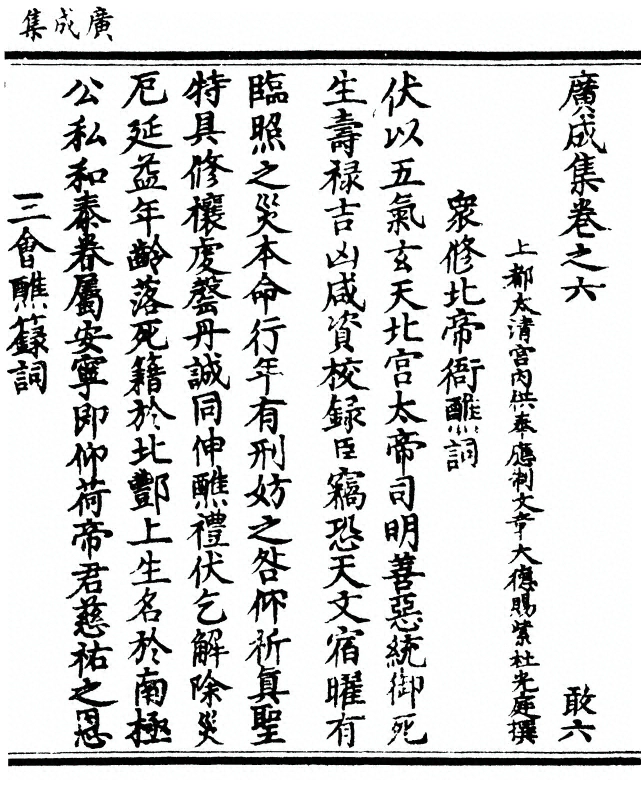 廣成集
廣成集卷之六 敢六
上都太清宮內供奉應制文章大德賜紫杜光庭撰
衆修北帝衙醮詞
伏以五氣玄天北宮太帝司明善惡統御死
生壽禄吉凶咸資校録臣竊恐天文宿曜有
臨照之災本命行年有刑妨之咎仰祈真聖
特具修禳虔罄丹誠同伸醮禮伏乞解除災
厄延益年齡落死籍於北酆上生名於南極
公私和泰眷屬安寧即仰荷帝君慈祐之恩
三會醮籙詞